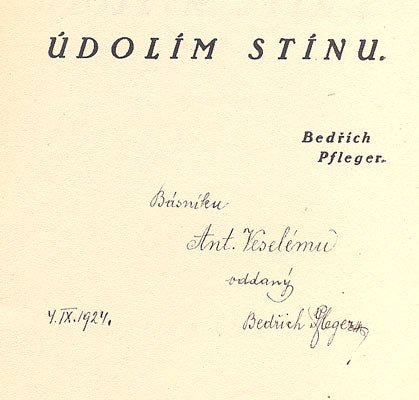 ÚDOLÍM STÍNU.
Bedřich
Pfleger.
Básníku
Ant. Veselému
oddaný
Bedřich Pfleger
4.IX.1924.